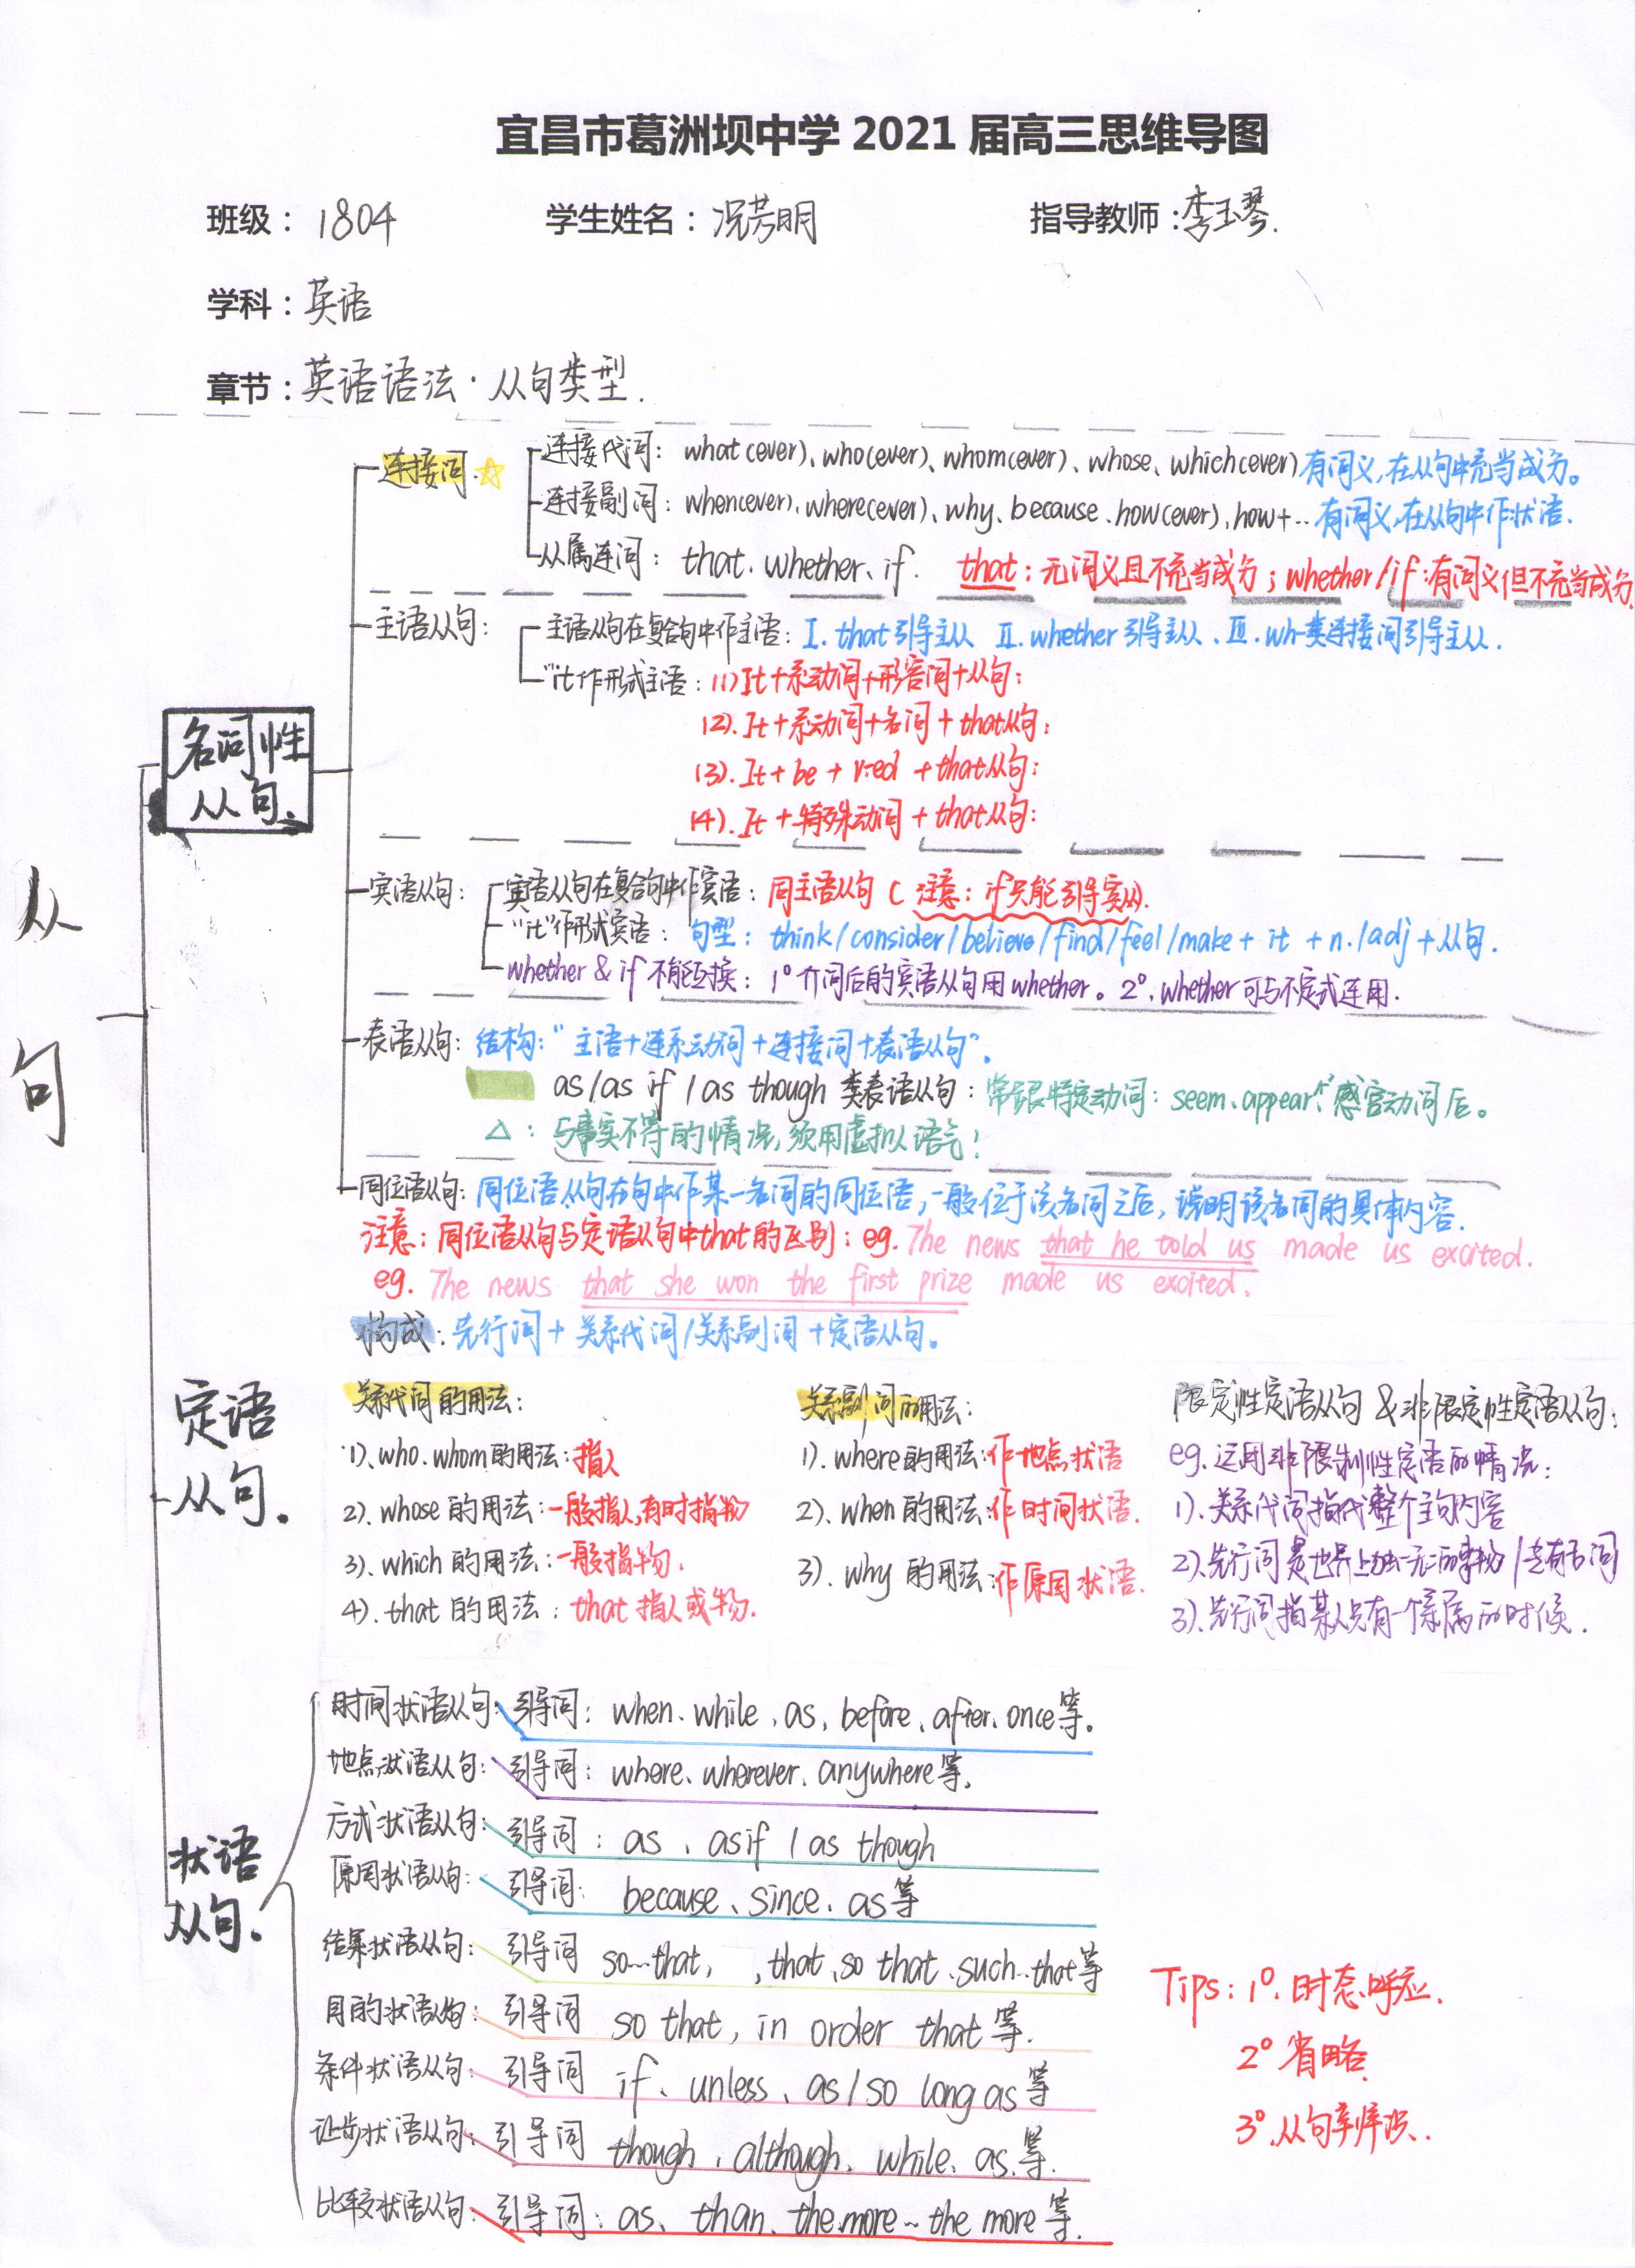 宜昌市葛洲坝中学 2021 届高三思维导图
班级：1804 学生姓名：况芳明 指导教师：李玉琴.
学科：英语
章节：英语语法·从句类型.
从句
名词性从句.
连接词.☆
连接代词：what(ever)、who(ever)、whom(ever)、whose、which(ever) 有词义,在从句中充当成分。
连接副词：when(ever)、where(ever)、why、because、how(ever)、how+… 有词义,在从句中作状语.
从属连词：that、whether、if. that：无词义且不充当成分；whether/if：有词义但不充当成分
主语从句：
主语从句在复合句中作主语：Ⅰ. that引导主从 Ⅱ. whether引导主从、Ⅲ. wh-类连接词引导主从.
"it"作形式主语：(1) It+系动词+形容词+从句：
(2). It+系动词+名词+that从句：
(3). It+be+v-ed+that从句：
(4). It+特殊动词+that从句：
宾语从句：
宾语从句在复合句中作宾语：同主语从句（注意：if只能引导宾从).
"it"作形式宾语：句型：think/consider/believe/find/feel/make+it+n./adj+从句.
whether & if 不能互换：1° 介词后的宾语从句用whether。2°. whether可与不定式连用.
表语从句：结构："主语+连系动词+连接词+表语从句".
as/as if/as though 类表语从句：常跟特定动词：seem、appear、"感官动词"后。
△：与事实不符的情况,须用虚拟语气!
同位语从句：同位语从句在句中作某一名词的同位语,一般位于该名词之后,说明该名词的具体内容.
注意：同位语从句与定语从句中that的区别：eg. The news that he told us made us excited.
eg. The news that she won the first prize made us excited.
定语从句.
构成：先行词+关系代词/关系副词+定语从句。
关系代词的用法：
1)、who.whom的用法：指人
2)、whose的用法：一般指人,有时指物
3)、which的用法：一般指物.
4)、that的用法：that指人或物.
关系副词的用法：
1). where的用法：作地点状语
2). when的用法：作时间状语.
3). why的用法：作原因状语.
限定性定语从句&非限定性定语从句：
eg. 运用非限制性定语的情况：
1). 关系代词指代整个主句内容
2). 先行词是世界上独一无二的事物/专有名词
3). 先行词指某人只有一个亲属的时候.
状语从句.
时间状语从句：引导词：when、while、as、before、after、once等。
地点状语从句：引导词：where、wherever、anywhere等。
方式状语从句：引导词：as、as if / as though
原因状语从句：引导词：because、since、as等
结果状语从句：引导词 so…that, ,that,so that、such…that等
目的状语从句：引导词 so that, in order that等.
条件状语从句：引导词 if、unless、as/so long as等
让步状语从句：引导词 though、although、while、as、等.
比较状语从句：引导词：as、than、the more ~ the more等.
Tips：1°. 时态呼应.
2° 省略
3°. 从句辛辨识.